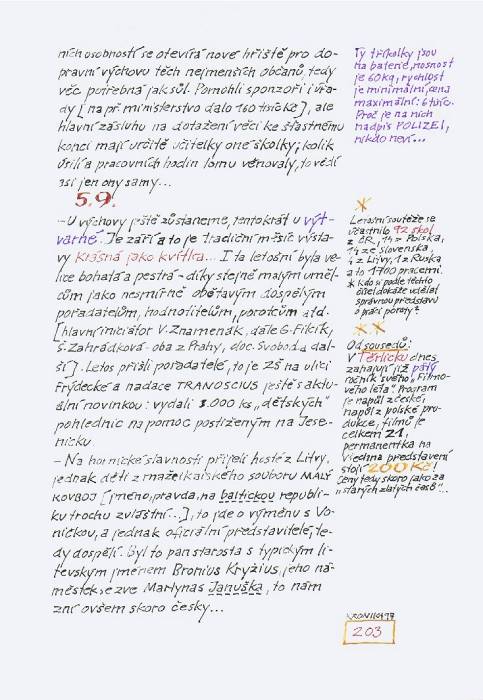 ních osobností se otevírá nové hřiště pro do-
pravní výchovu těch nejmenších občanů, tedy
věc potřebná jak sůl. Pomohli sponzoři i úřa-
dy [např ministerstvo dalo 160 tisíc Kč], ale
hlavní zásluhu na dotažení věci ke šťastnému
konci mají určitě učitelky one školky; kolik
úsilí a pracovních hodin tomu věnovaly, to vědí
asi jen ony samy...
5.9.
- U výchovy ještě zůstaneme, tentokrát u výt-
varné. Je září a to je tradiční měsíc výsta-
vy Krásná jako kvítka... I ta letošní byla ve-
lice bohatá a pestrá - díky stejně malým uměl-
cům jako nesmírně obětavým dospělým
pořadatelům, hodnotitelům, porotcům atd.
[hlavní iniciátor V. Znamenák, dále G. Filcík,
Š. Zahrádková - oba z Prahy, doc. Svoboda dal-
ší]. Letos přišli pořadatelé, to je ZŠ na ulici
Frýdecké a nadace TRANOSCIUS ještě s aktu-
ální novinkou: vydali 3.000 ks „dětských"
pohlednic na pomoc postiženým na Jese-
nicku.
- Na hornické slavnosti přijeli hosté z Litvy,
jednak děti z mažeikaiského souboru MALÝ
KOVBOJ [jméno, pravda, na baltickou republi-
ku trochu zvláštní...], to jde o výměnu s Vo-
ničkou, a jednak oficiální představitelé, te-
dy dospělí. Byl to pan starosta s typickým li-
tevským jménem Bronius Kryžius, jeho ná-
městek se zve Martynas Januška, to nám
zní ovšem skoro česky...
Ty tříkolky jsou
na baterie, nosnost
je 60 kg, rychlost
je minimální, cena
maximální: 6 tisíc.
Proč je na nich
nadpis POLIZEI,
nikdo neví...
Letošní soutěže se
účastnilo 92 škol
z ČR, 14 z Polska,
14 ze Slovenska,
4 z Litvy, 1 z Ruska
a to 1700 pracemi.
* Kdo si podle těchto
čísel dokáže udělat
správnou představu
o práci poroty?
Od sousedů:
V Těrlicku dnes
zahajují již pátý
ročník svého „Filmo-
vého léta". Program
je napůl z české,
napůl z polské pro-
dukce, filmů je
celkem 21,
permanentka na
všechna představení
stojí 200 Kč!
Ceny tedy skoro jako za
„starých zlatých časů"...
KRON1104 97
203